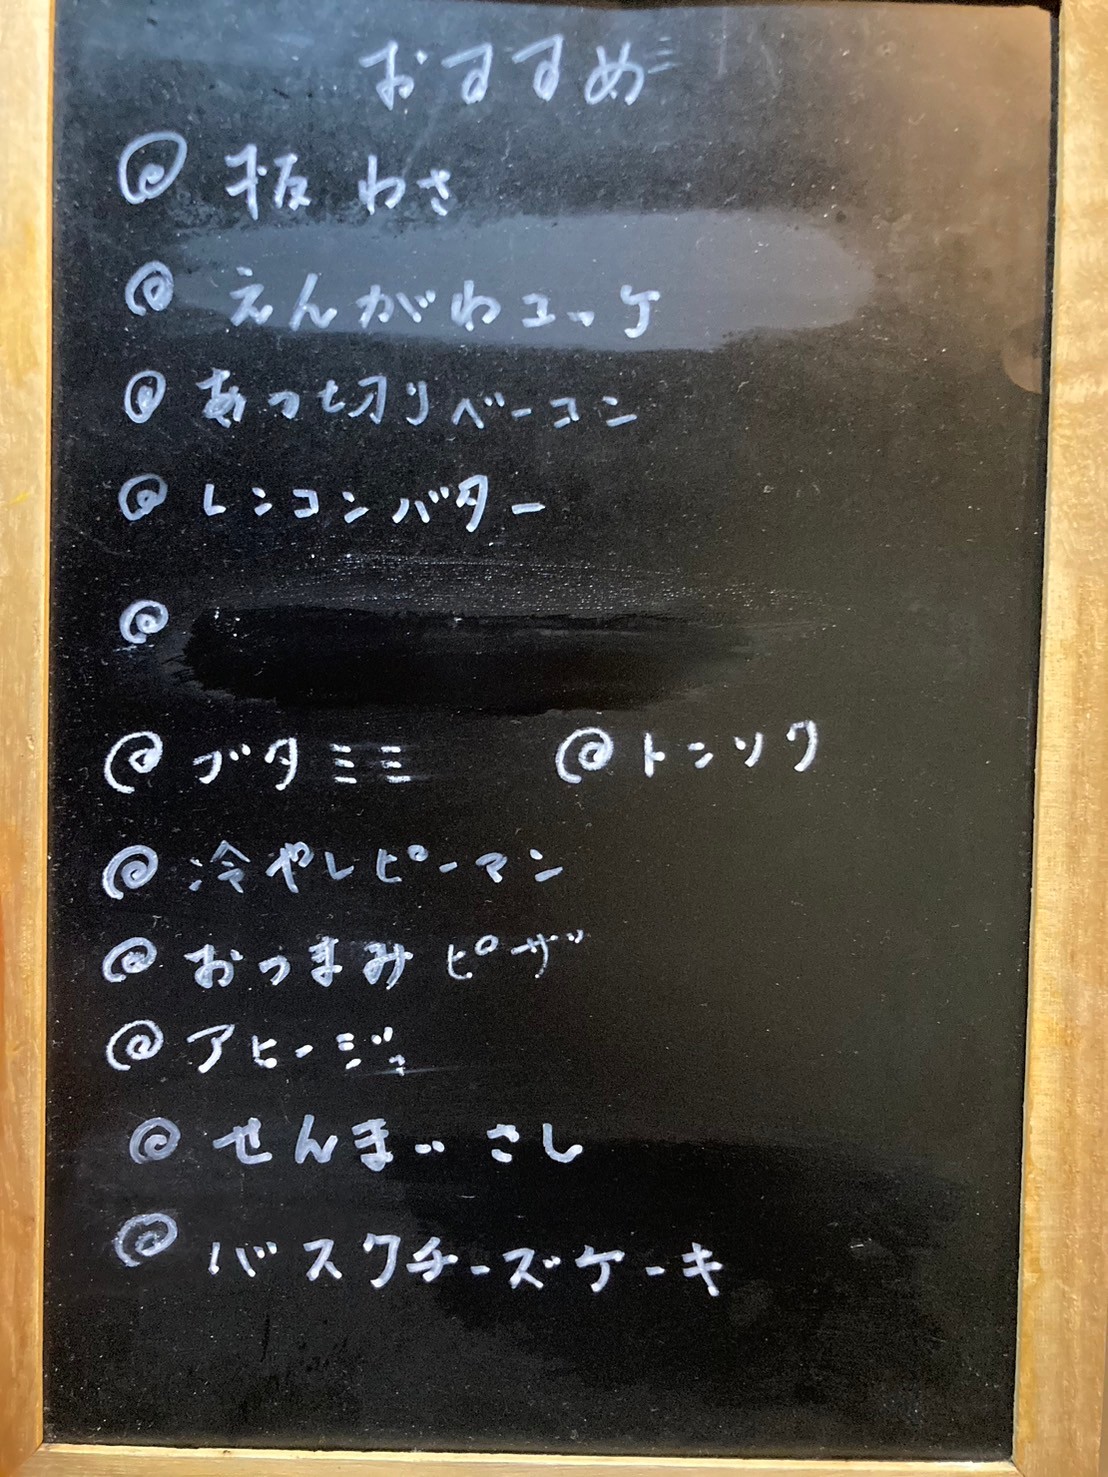 おすすめ
@ 板わさ
@ えんがわユッケ
@ あつ切りベーコン
@ レンコンバター
@
@ ブタミミ @ トンソク
@ 冷やしピーマン
@ おつまみピザ
@ アヒージョ
@ せんまいさし
@ バスクチーズケーキ